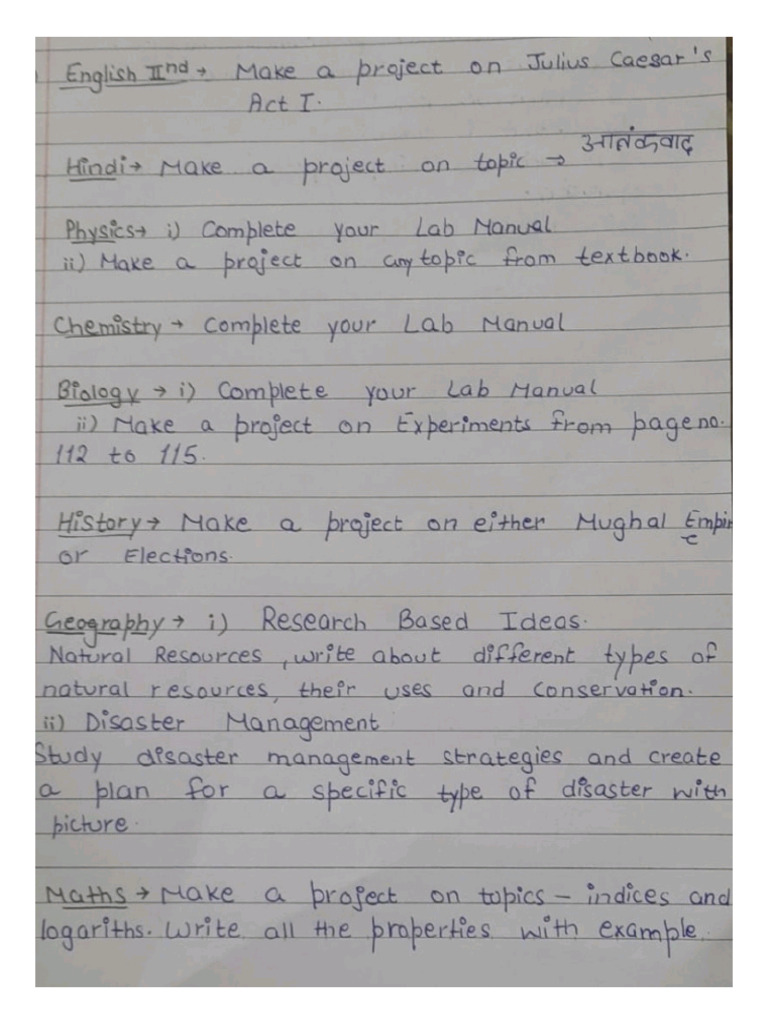 English IInd → Make a project on Julius Caesar's
Act I.
Hindi → Make a project on topic → आतंकवाद
Physics → i) Complete your Lab Manual
ii) Make a project on any topic from textbook.
Chemistry → Complete your Lab Manual
Biology → i) Complete your Lab Manual
ii) Make a project on Experiments from page no.
112 to 115.
History → Make a project on either Mughal Empire
or Elections.
Geography → i) Research Based Ideas.
Natural Resources, write about different types of
natural resources, their uses and conservation.
ii) Disaster Management
Study disaster management strategies and create
a plan for a specific type of disaster with
picture.
Maths → Make a project on topics - indices and
logariths. Write all the properties with example.